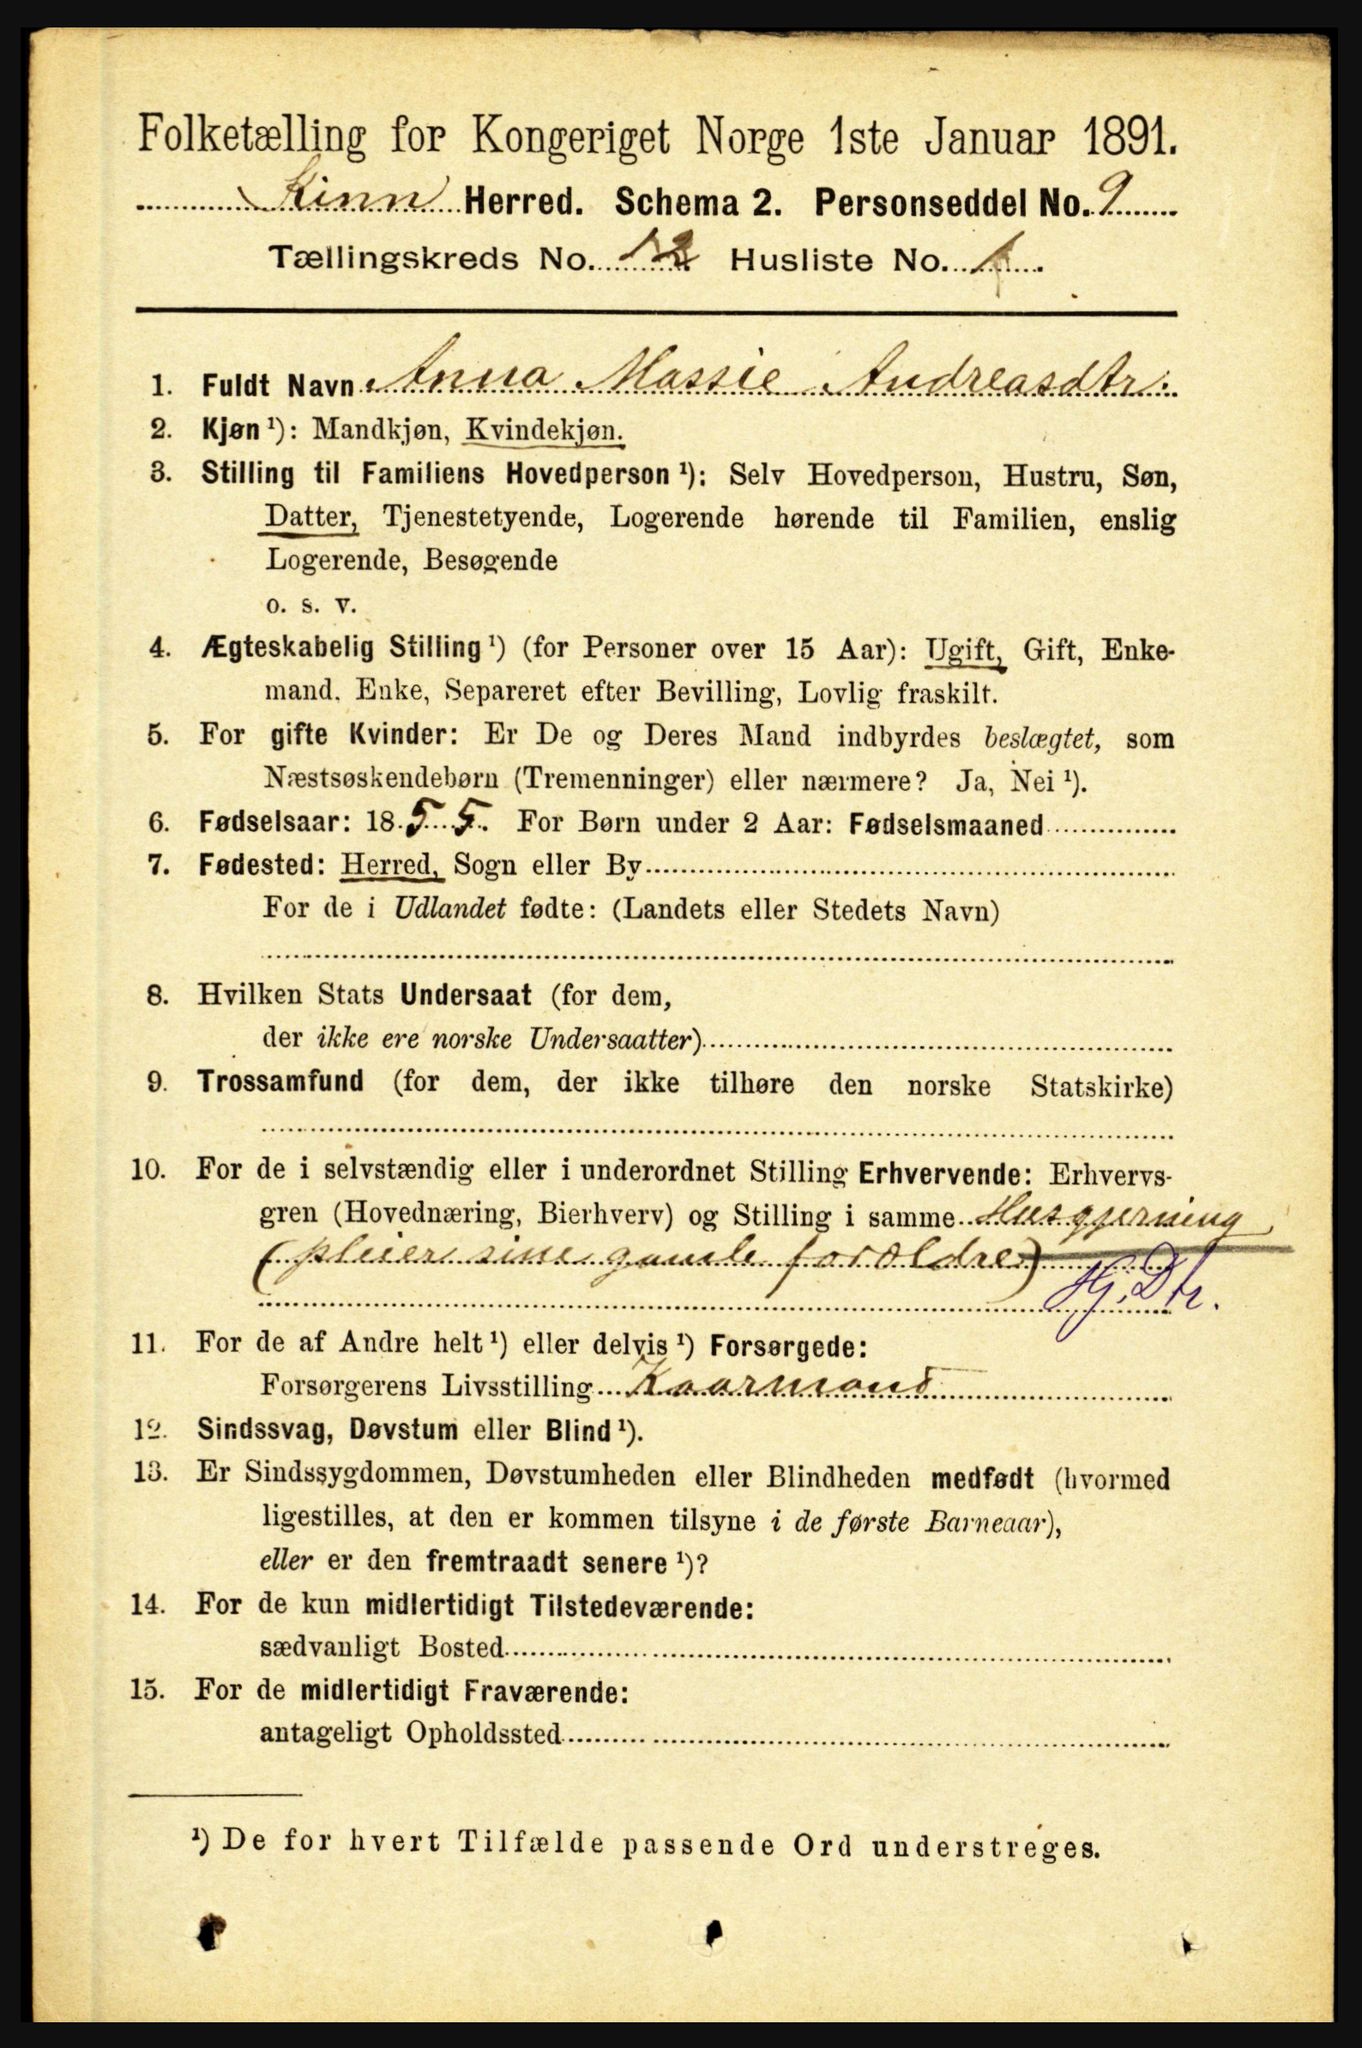 Folketælling for Kongeriget Norge 1ste Januar 1891.
Kinn Herred. Schema 2. Personseddel No. 9
Tællingskreds No. 12 Husliste No. 1
1. Fuldt Navn Anna Massie Andreasdtr.
2. Kjøn ¹): Mandkjøn, Kvindekjøn.
3. Stilling til Familiens Hovedperson ¹): Selv Hovedperson, Hustru, Søn,
Datter, Tjenestetyende, Logerende hørende til Familien, enslig
Logerende, Besøgende
o. s. v.
4. Ægteskabelig Stilling ¹) (for Personer over 15 Aar): Ugift, Gift, Enke-
mand, Enke, Separeret efter Bevilling, Lovlig fraskilt.
5. For gifte Kvinder: Er De og Deres Mand indbyrdes beslægtet, som
Næstsøskendebørn (Tremenninger) eller nærmere? Ja, Nei ¹).
6. Fødselsaar: 1855. For Børn under 2 Aar: Fødselsmaaned
7. Fødested: Herred, Sogn eller By
For de i Udlandet fødte: (Landets eller Stedets Navn)
8. Hvilken Stats Undersaat (for dem,
der ikke ere norske Undersaatter)
9. Trossamfund (for dem, der ikke tilhøre den norske Statskirke)
10. For de i selvstændig eller i underordnet Stilling Erhvervende: Erhvervs-
gren (Hovednæring, Bierhverv) og Stilling i samme Husgjerning
(pleier sine gamle forældre)
Hj. Dtr.
11. For de af Andre helt ¹) eller delvis ¹) Forsørgede:
Forsørgerens Livsstilling Kaarmand
12. Sindssvag, Døvstum eller Blind ¹).
13. Er Sindssygdommen, Døvstumheden eller Blindheden medfødt (hvormed
ligestilles, at den er kommen tilsyne i de første Barneaar),
eller er den fremtraadt senere ¹)?
14. For de kun midlertidigt Tilstedeværende:
sædvanligt Bosted
15. For de midlertidigt Fraværende:
antageligt Opholdssted
¹) De for hvert Tilfælde passende Ord understreges.